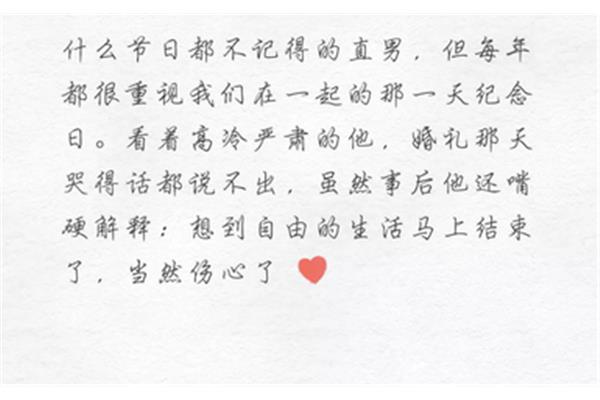 什么节日都不记得的直男，但每年
都很重视我们在一起的那一天纪念
日。看着高冷严肃的他，婚礼那天
哭得话都说不出，虽然事后他还嘴
硬解释：想到自由的生活马上结束
了，当然伤心了